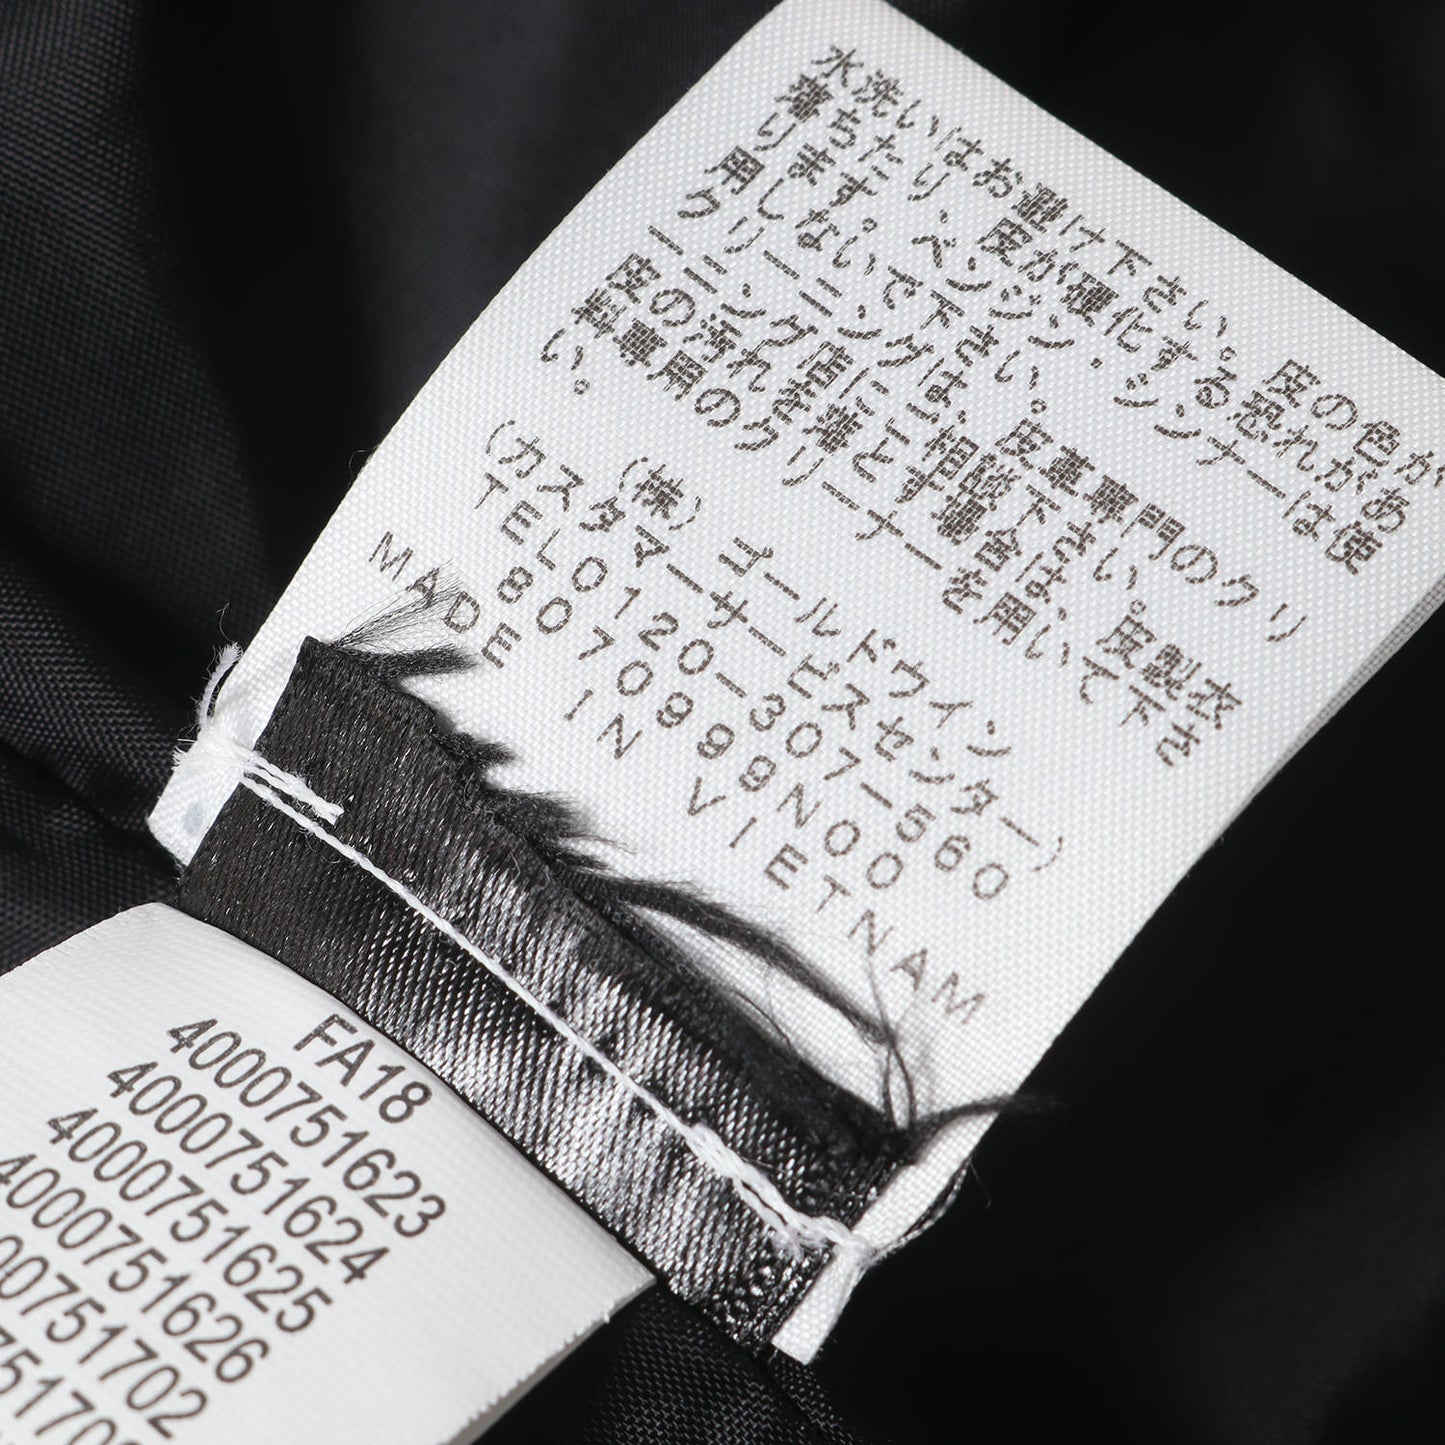 水洗いはお避け下さい。皮の色が
落ちたり、皮が硬化する恐れがあ
ります。ベンジン・シンナーは使
用しないで下さい。
クリーニングは、皮革専門のクリ
ーニング店にご相談下さい。皮製衣
皮の汚れを落とす場合は、
料専用のクリーナーを用いて下さ
い。
(株) ゴールドウイン
(カスタマーサービスセンター)
TEL0120-307-560
807098N00
MADE IN VIETNAM
FA18
4000751623
4000751624
4000751625
4000751626
00751702